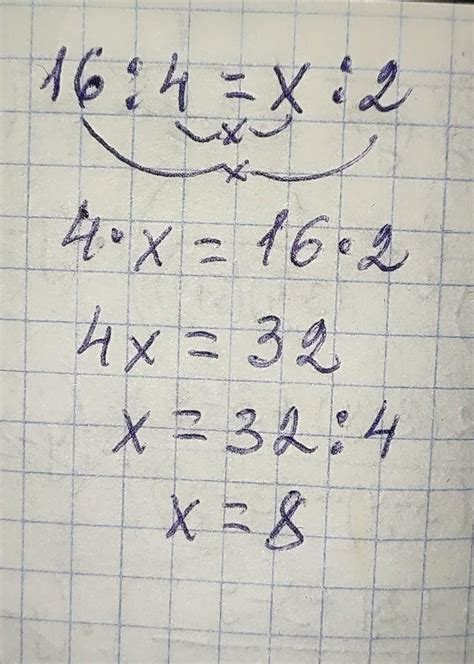 16:4=x:2
x
x
4·x=16·2
4x=32
x=32:4
x=8